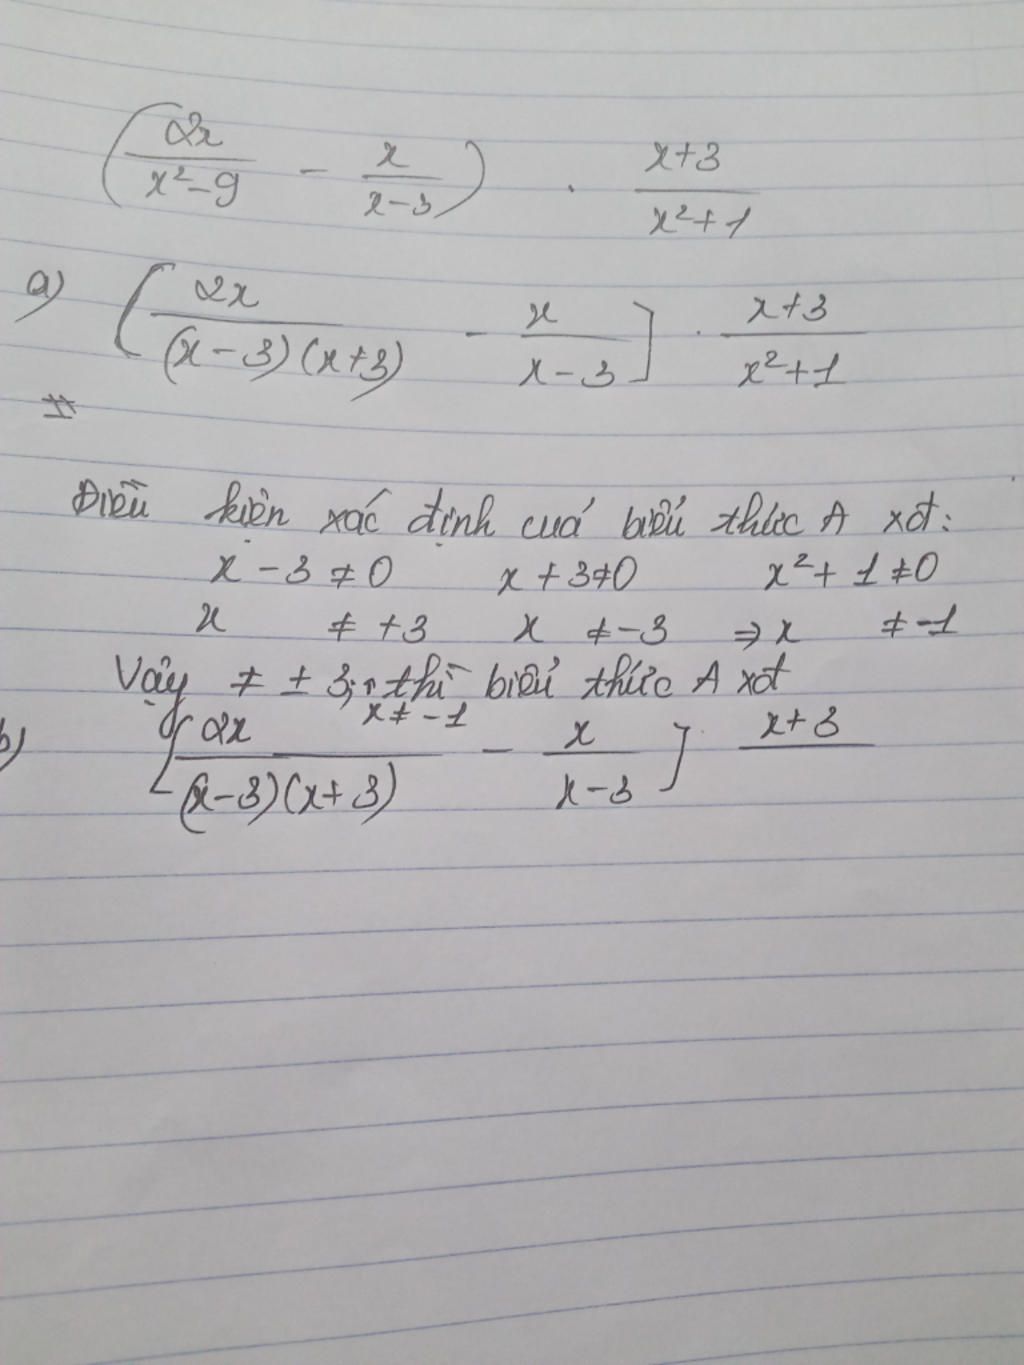 (2x/(x²-9) - x/(x-3)) . (x+3)/(x²+1)
a) [2x/((x-3)(x+3)) - x/(x-3)] . (x+3)/(x²+1)
Điều kiện xác định cuả biểu thức A xđ:
x - 3 ≠ 0 x + 3 ≠ 0 x² + 1 ≠ 0
x ≠ +3 x ≠ -3 ⇒ x ≠ -1
Vậy ≠ ± 3; thì biểu thức A xđ
x ≠ -1
b) [2x/((x-3)(x+3)) - x/(x-3)] . x+3